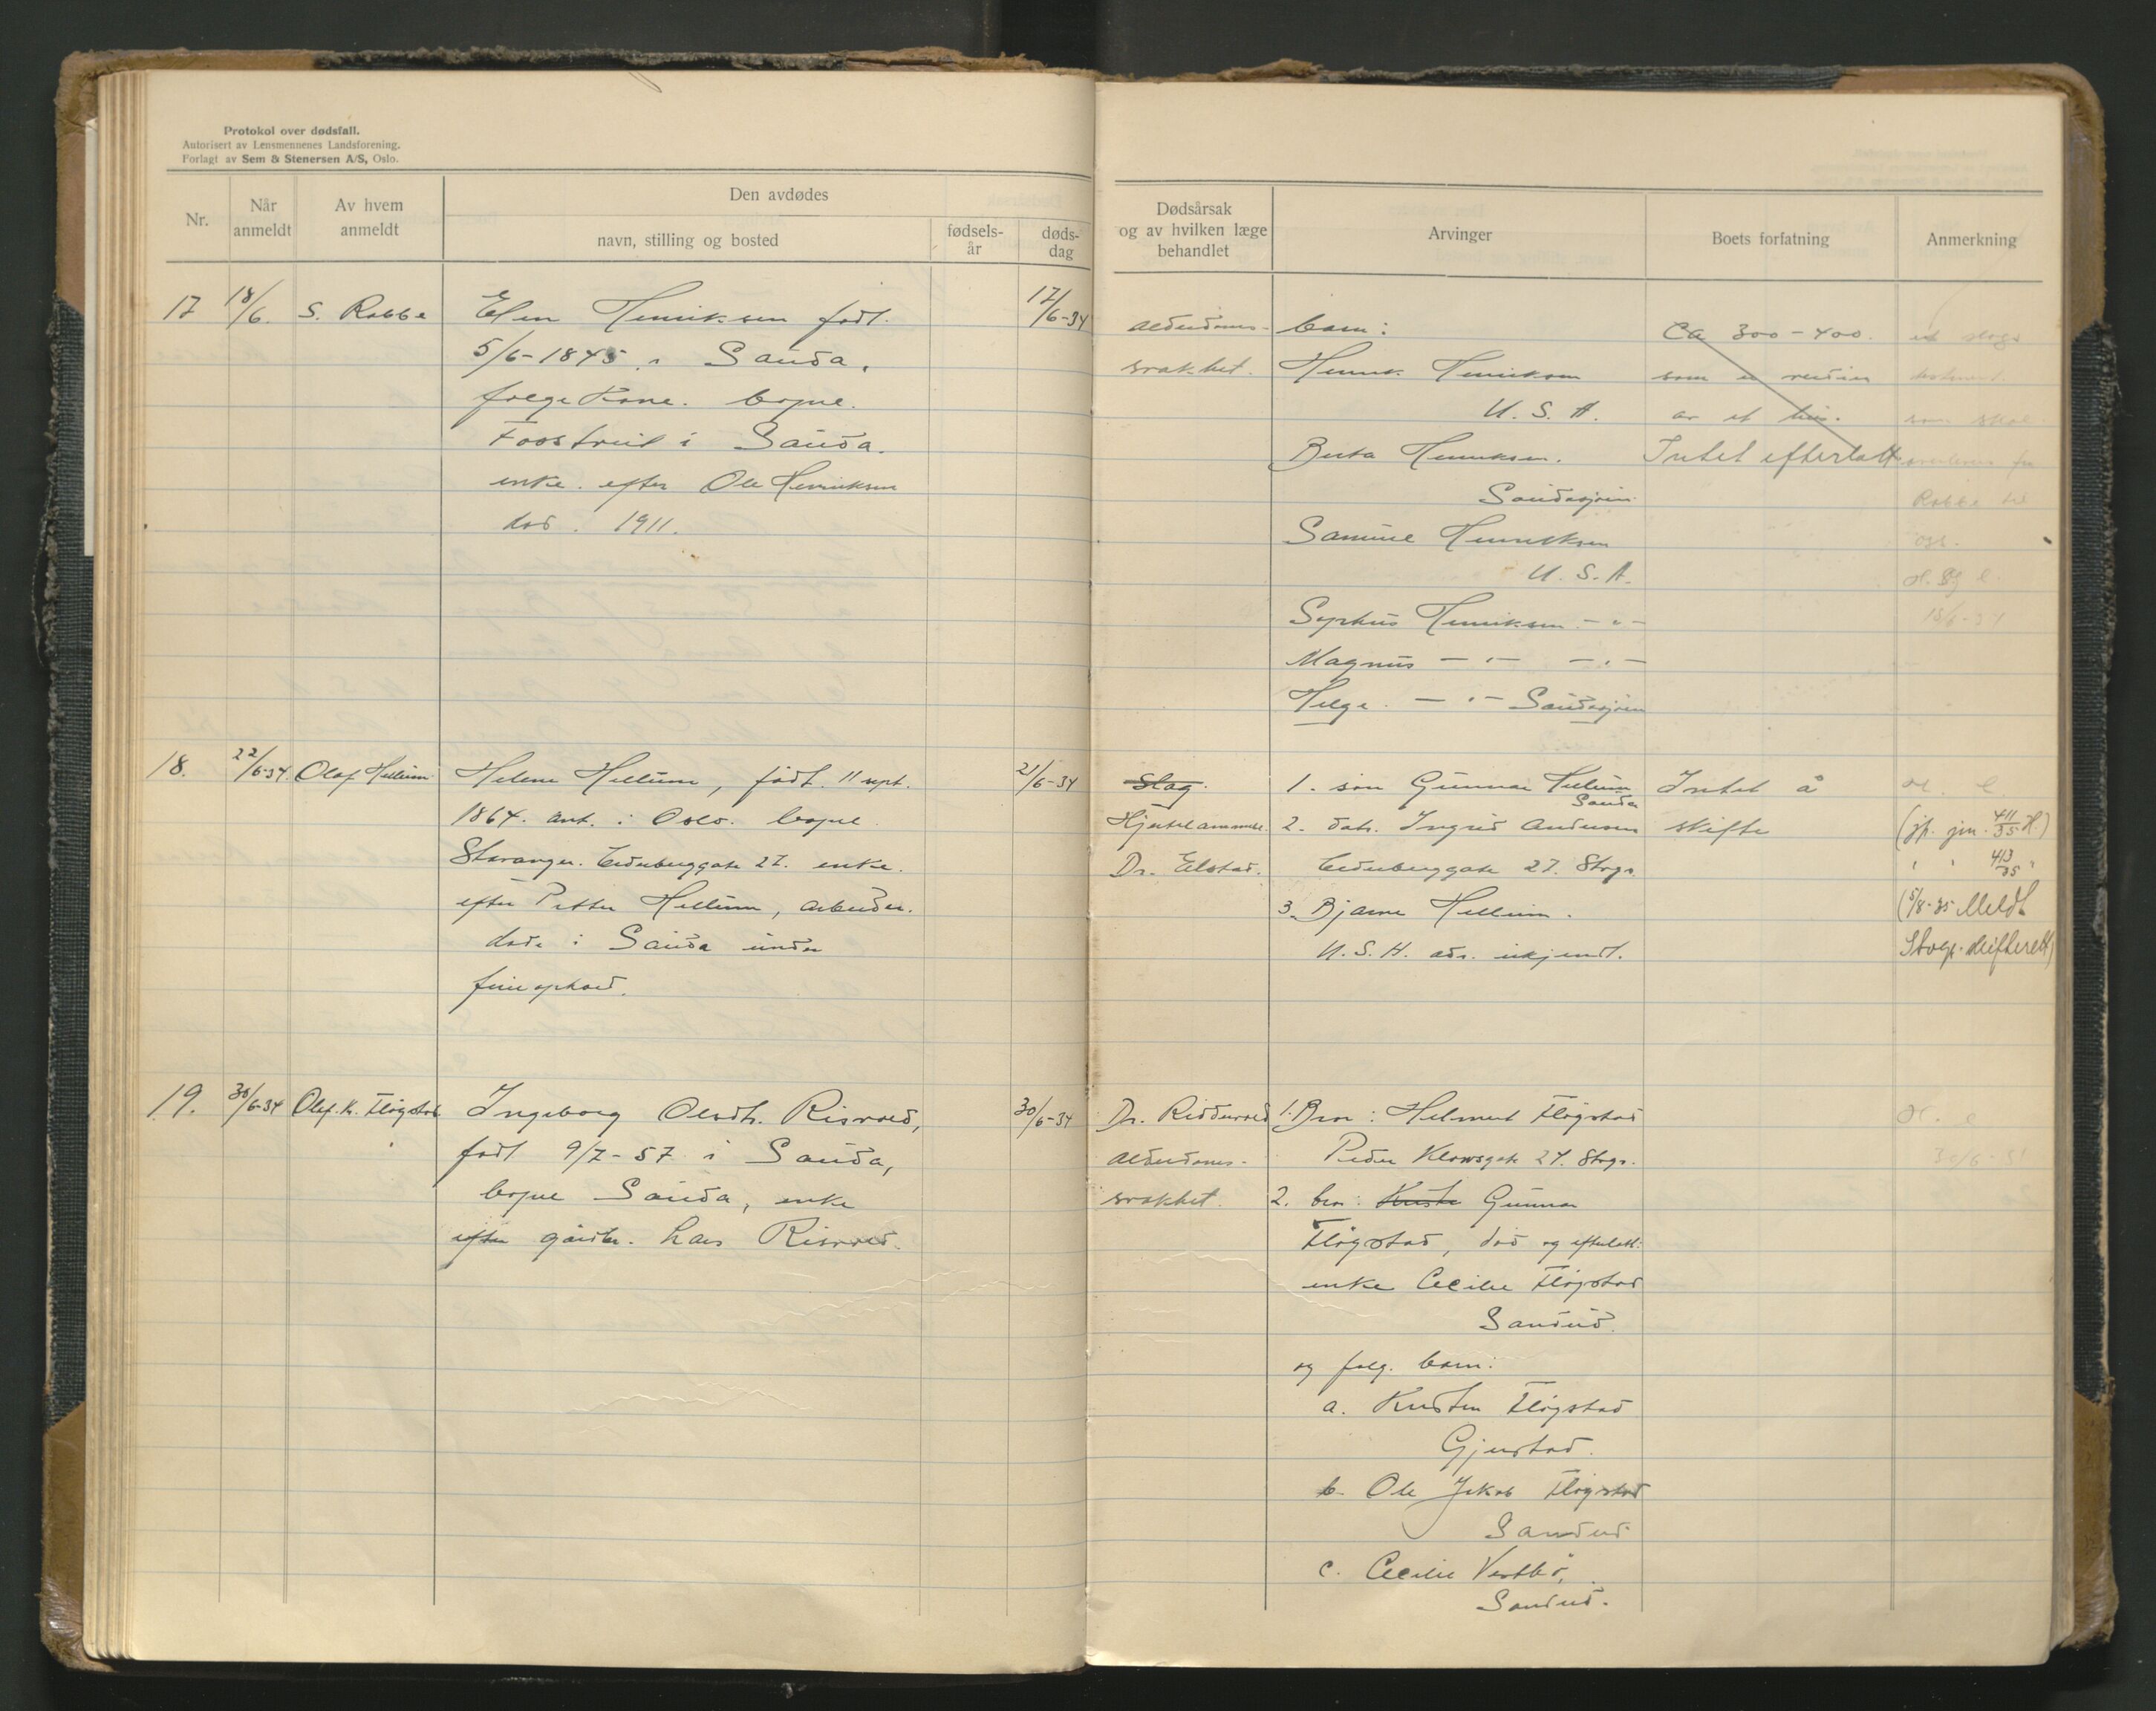 Protokol over dødsfall.
Autorisert av Lensmennenes Landsforening.
Forlagt av Sem & Stenersen A/S, Oslo.
Nr.
Når anmeldt
Av hvem anmeldt
Den avdødes
navn, stilling og bosted
fødsels-år
døds-dag
Dødsårsak og av hvilken læge behandlet
Arvinger
Boets forfatning
Anmerkning
17 18/6. S. Rabbe
Elen Henriksen født
5/6-1845 i Sauda,
folgekone. bopæl.
i Sauda.
enke efter Ole Henriksen
død. 1911.
17/6-34
alderdoms-
svakhet.
barn:
Henrik Henriksen
U. S. A.
Berta Henriksen.
Saudasjøen
Samuel Henriksen
U. S. A.
Sophus Henriksen - " -
Magnus - " - - " -
Helge - " - Saudasjøen
Ca 300-400.
som er verdien
av et hus.
Intet efterlatt
Rabbe til
oss.
18/6-34
18. 22/6-34. Olaf Hellum
Helene Hellum, født. 11 sept.
1864. ant. i Oslo. bopæl
Stavanger. Cederberggate 27. enke.
efter Petter Hellum, arbeider.
døde i Sauda under
ferieophold.
21/6-34
Slag.
Hjertelammelse.
Dr. Elstad.
1. søn Gunnar Hellum
Sauda
2. datr. Ingrid Andersen
Cederberggate 27. Stvgr.
3. Bjarne Hellum.
U. S. A. adr. ukjendt.
Intet å
skifte
(jf. jnr. 411/35 H.)
" " 413/35 "
(5/8-35 Meldt
Stvgr. skifterett)
19. 30/6-34 Olaf. K. Fløgstad
Ingeborg Olsdtr. Risvold,
født 9/7-57 i Sauda,
bopæl Sauda, enke
efter gårdbr. Lars Risvold.
30/6-34
Dr. Riddervold
alderdoms-
svakhet.
1. Bror: Helmert Fløgstad
Peder Klowsgate 27. Stvgr.
2. bror: Gunnar
Fløgstad, død og efterlatt:
enke Cecilie Fløgstad
Sandeid.
og følg. barn:
a. Kristen Fløgstad
Gjerstad.
b. Ole Jakob Fløgstad
Sandeid.
c. Cecilie Vestbø,
Sandeid.
30/6